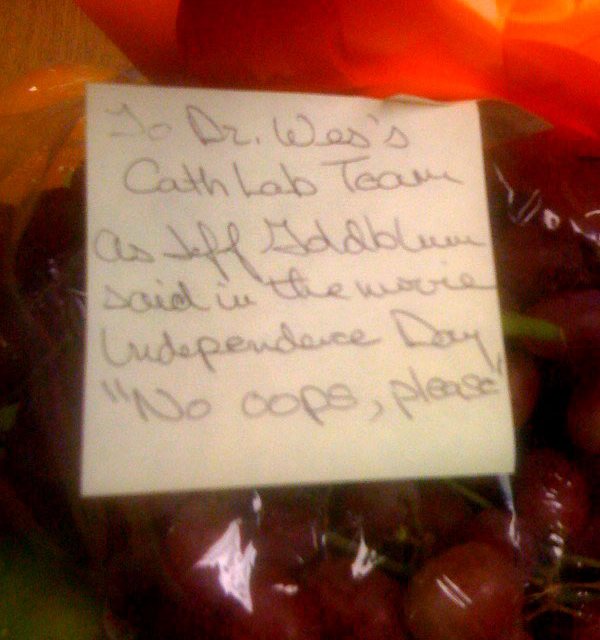 To Dr. Wes's
Cath Lab Team
as Jeff Goldblum
said in the movie
Independence Day,
"No oops, please"